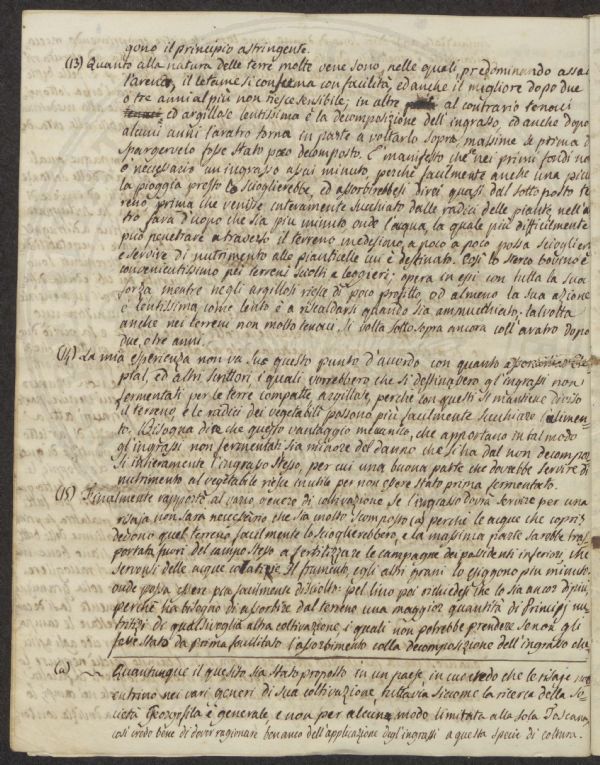 gono il principio astringente.
(13) Quanto alla natura delle terre molte vene sono, nelle quali predominando assai
l'arena, il letame si consuma con facilità, ed anche il migliore dopo due
o tre anni al più non riesce sensibile; in altre al contrario tenaci
ed argillose lentissima è la decomposizione dell'ingrasso, ed anche dopo
alcuni anni l'aratro torna in parte a voltarlo sopra, massime se prima di
spargervelo fosse stato poco decomposto. E' manifesto che nei primi fondi no
è necessario un ingrasso assai minuto, perchè facilmente anche una piccola
la pioggia presto lo scioglierebbe, ed assorbirebbesi dirai quasi dal sottoposto te
reno prima che venisse interamente succhiato dalle radici delle piante, nell'al
tro sarà d'uopo che sia più minuto onde l'acqua, la quale più difficilmente
può penetrare a traverso il terreno medesimo, a poco a poco possa scioglier
e servire di nutrimento alle pianticelle cui è destinato. Così lo sterco bovino è
convenientissimo pei terreni sciolti e leggieri; opera in essi con tutta la sua
forza mentre negli argillosi riesce di poco profitto, od almeno la sua azione
è lentissima, come lento è a riscaldarsi quando sia ammucchiato: talvolta
anche nei terreni non molto tenaci si volta sotto sopra ancora coll'aratro dopo
due, o tre anni.
(14) La mia esperienza non va su questo punto d'accordo con quanto
ptal, ed altri scrittori, i quali vorrebbero che si destinassero gl'ingrassi non
fermentati per le terre compatte argillose, perchè con questi si mantiene diviso
il terreno, e le radici dei vegetabili possono più facilmente succhiare l'alimen-
to. Bisogna dire che questo vantaggio meccanico, che apportano in tal modo
gl'ingrassi non fermentati sia minore del danno che si ha dal non decompor
si intieramente l'ingrasso stesso, per cui una buona parte che dovrebbe servire di
nutrimento al vegetabile riesce inutile per non essere stato prima fermentato.
(15) Finalmente rapporto al vario genere di coltivazione se l'ingrasso dovrà servire per una
risaja non sarà necessario che sia molto scomposto (a) perchè le acque che copri-
debono quel terreno facilmente lo scioglierebbero, e la massima parte sarebbe tras
portata fuori del campo stesso a fertilizzare le campagne dei possidenti inferiori che
servonsi delle acque colatizie. Il frumento, e gli altri grani lo esiggono più minuto
onde possa essere più facilmente disciolto: pel lino poi richiedesi che lo sia ancor di più,
perchè ha bisogno di assorbire dal terreno una maggior quantità di principj nu
tritizj di qualsivoglia altra coltivazione, i quali non potrebbe prendere se non gli
fosse stato da prima facilitato l'assorbimento colla decomposizione dell'ingrasso che
(a) Quantunque il quesito sia stato proposto in un paese, in cui credo che le risaje non
entrino nei varj generi di sua coltivazione tuttavia siccome la ricerca della So
cietà Georgofila è generale, e non per alcun modo limitata alla sola Toscana,
così credo bene di dover ragionare ben anco dell'applicazione degl'ingrassi a questa specie di coltura.